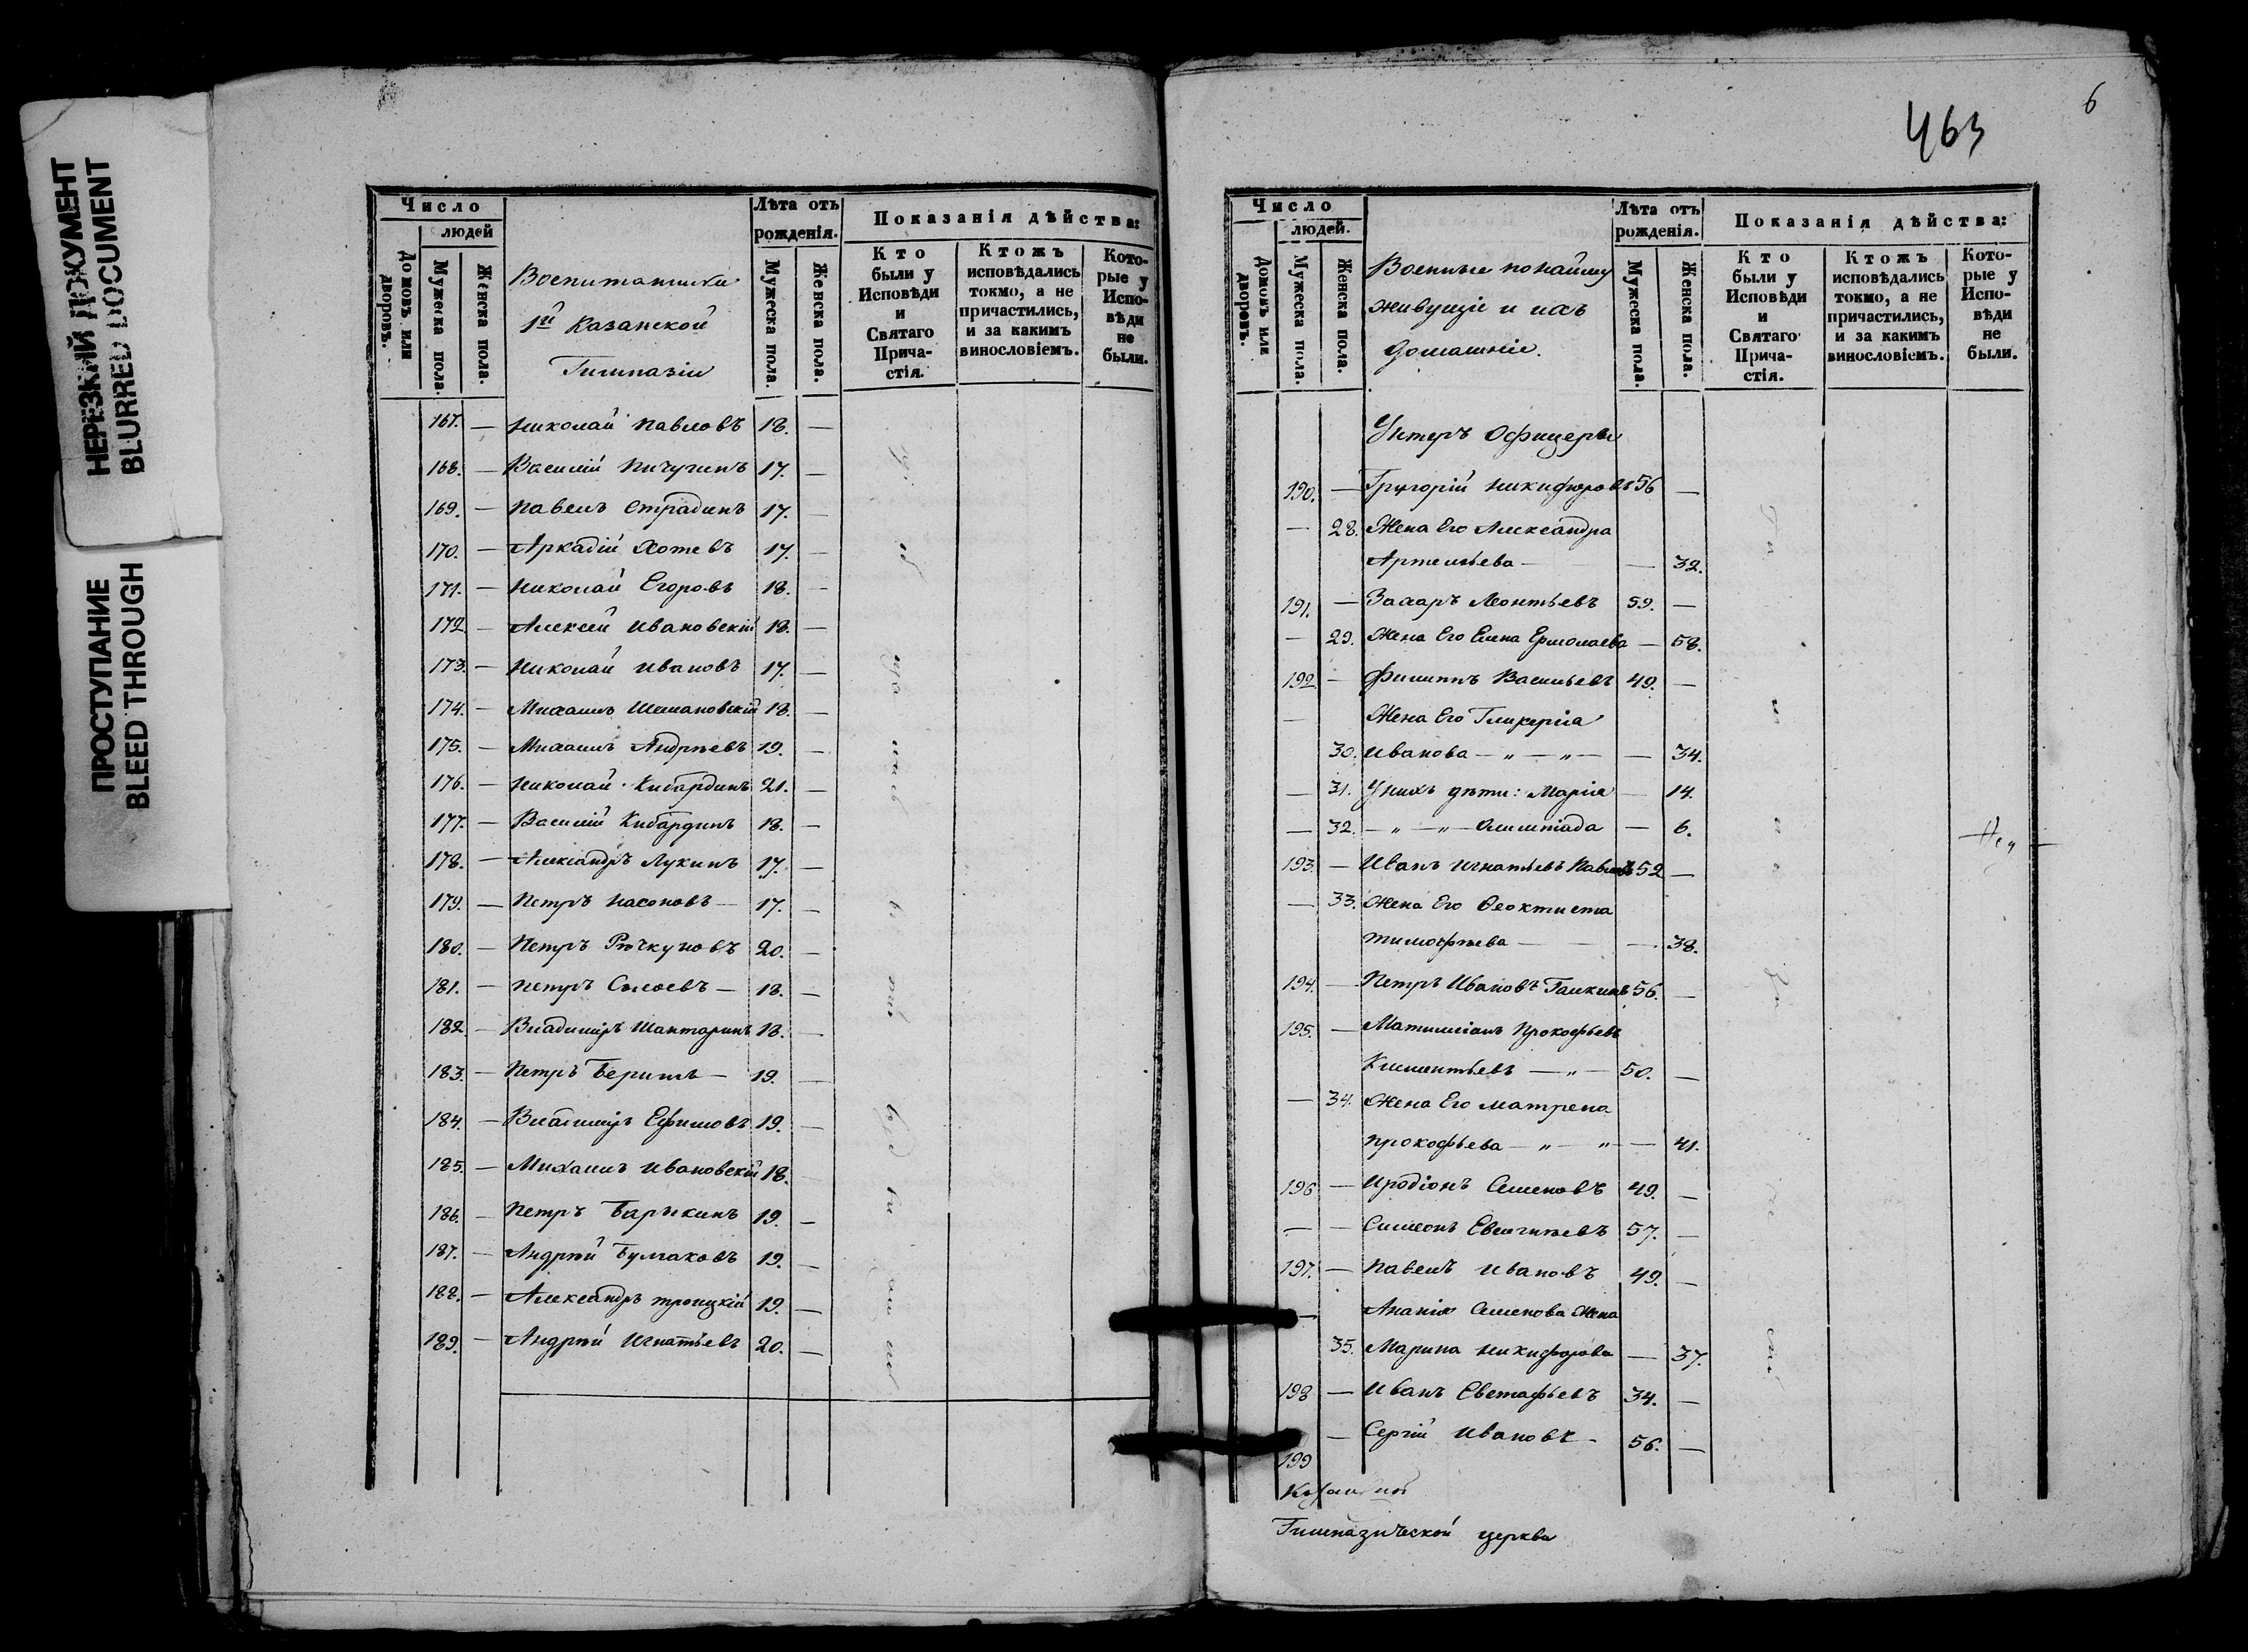 НЕРЕЗКИЙ ДОКУМЕНТ
BLURRED DOCUMENT
ПРОСТУПАНИЕ
BLEED THROUGH
Число
людей
Домовъ или дворовъ.
Мужеска пола.
Женска пола.
Воспитанники
1й Казанской
Гимназіи
Лѣта отъ рожденія.
Мужеска пола.
Женска пола.
Показанія дѣйства:
Кто были у Исповѣди и Святаго Прича-стія.
Ктожъ исповѣдались токмо, а не причастились, и за какимъ винословіемъ.
Кото-рые у Испо-вѣди не были.
167. — Николай Павловъ 18. —
168. — Василій Пичугинъ 17. —
169. — Павелъ Страдинъ 17. —
170. — Аркадій Хотевъ 17. —
171. — Николай Егоровъ 18. —
172 — Алексей Ивановскій 18. —
173. — Николай Ивановъ 17. —
174. — Михаилъ Шемановскій 18. —
175. — Михаилъ Андреевъ 19. —
176. — Николай Кибардинъ 21. —
177. — Василій Кибардинъ 18. —
178. — Александръ Лукинъ 17. —
179. — Петръ Насоновъ — 17. —
180. — Петръ Рычкуновъ 20. —
181. — Петръ — 18. —
182. — Владиміръ Шантаринъ 18. —
183. — Петръ — 19. —
184. — Владиміръ Ефимовъ 19. —
185. — Михаилъ Ивановскій 18.
186. — Петръ Барыкинъ 19. —
187. — Андрей Булгаковъ 19. —
188. — Александръ Троицкій 19. —
189. — Андрей Игнатьевъ 20. —
463
6
Число
людей.
Домовъ или дворовъ.
Мужеска пола.
Женска пола.
Военные по найму
живущіе и ихъ
домашніе.
Лѣта отъ рожденія.
Мужеска пола.
Женска пола.
Показанія дѣйства:
Кто были у Исповѣди и Святаго Прича-стія.
Ктожъ исповѣдались токмо, а не причастились, и за какимъ винословіемъ.
Кото-рые у Испо-вѣди не были.
Унтеръ Офицеры
190. — Григорій Никифоровъ 56 —
— 28. Жена Его Александра
Артемьева — — 32.
191. — Захаръ Леонтьевъ 59. —
— 29. Жена Его Елена Ермолаева — 58.
192 — Филиппъ Васильевъ 49. —
— Жена Его Гликерія
30. Иванова — „ — „ — — 34.
— 31. У нихъ дѣти: Марія — 14.
— 32. — „ — „ — Олимпіада — 6.
193. — Иванъ Игнатьевъ Павловъ 52 —
— 33. Жена Его Феоктиста
Тимофѣева — — 38.
194. — Петръ Ивановъ Галкинъ 56. —
195. — Прокофьевъ
Климентьевъ — „ — 50. —
— 34. Жена Его Матрена
Прокофьева — „ — „ — — 41.
196 — Иродіонъ Семеновъ 49. —
— — Симеонъ 57. —
197. — Павелъ Ивановъ 49. —
— Ананія Семенова Жена
35. Марина Никифорова — 37.
198 — Иванъ Евстафьевъ 34. —
199 — Сергій Ивановъ — 56. —
Гимназической церкви